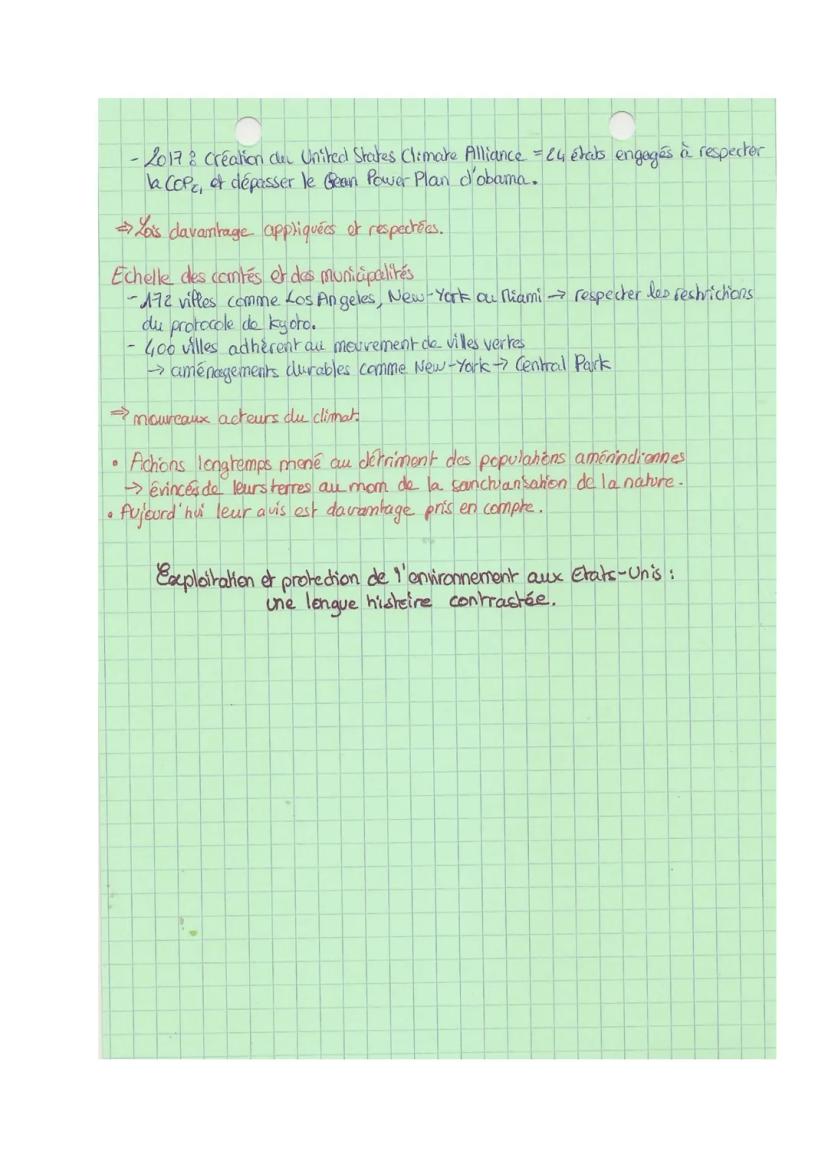 - 2017 : Création du United States Climate Alliance = 24 états engagés à respecter
la COP21 et dépasser le Clean Power Plan d'obama.
⇒ Lois davantage appliquées et respectées.
Echelle des comtés et des municipalités
- 172 villes comme Los Angeles, New-York ou Miami → respecter les restrictions
du protocole de kyoto.
- 400 villes adhèrent au mouvement de villes vertes
→ aménagements durables comme New-York → Central Park
⇒ nouveaux acteurs du climat.
• Actions longtemps mené au détriment des populations amérindiennes
→ évincés de leurs terres au nom de la sanctuarisation de la nature.
• Aujourd'hui leur avis est davantage pris en compte.
Exploitation et protection de l'environnement aux Etats-Unis :
une longue histoire contrastée.